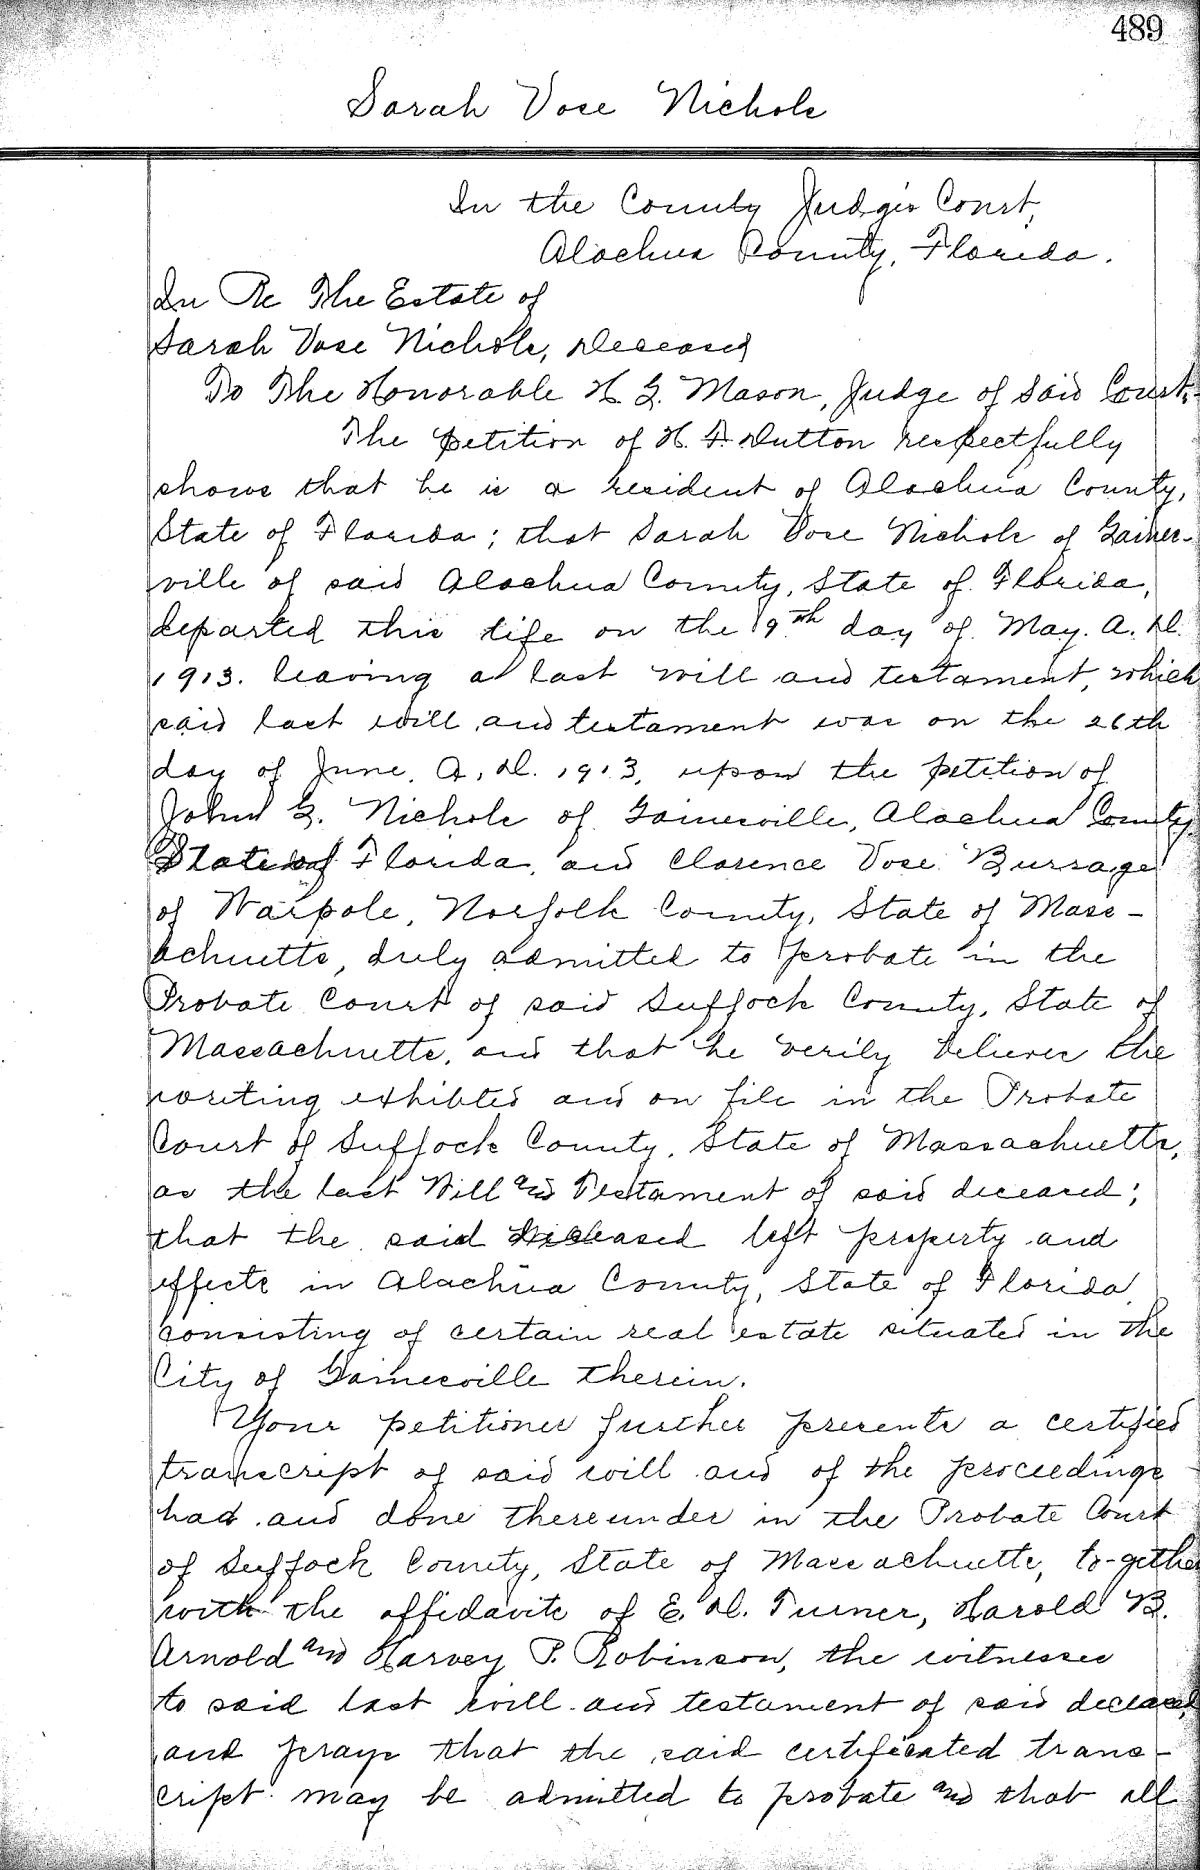 489
Sarah Vose Nichols
In the County Judge's Court,
Alachua County, Florida.
In Re The Estate of
Sarah Vose Nichols, Deceased
To The Honorable H. G. Mason, Judge of Said Court:-
The petition of H. F. Dutton respectfully
shows that he is a resident of Alachua County,
State of Florida; that Sarah Vose Nichols of Gaines-
ville of said Alachua County, State of Florida,
departed this life on the 9th day of May. A. D.
1913. leaving a last will and testament, which
said last will and testament was on the 26th
day of June, A. D. 1913, upon the petition of
John G. Nichols of Gainesville, Alachua County,
State of Florida, and Clarence Vose Burrage
of Walpole, Norfolk County, State of Mass-
achuetts, duly admitted to probate in the
Probate Court of said Suffock County, State of
Massachuetts, and that he verily believes the
writing exhibted and on file in the Probate
Court of Suffock County, State of Massachuetts,
as the last Will and Testament of said deceased;
that the said deceased left property and
effects in Alachua County, State of Florida,
consisting of certain real estate situated in the
City of Gainesville therein.
Your petitioner further presents a certified
transcript of said will and of the proceedings
had and done thereunder in the Probate Court
of Suffock County, State of Massachuetts, to-gether
with the affidavits of E. D. Turner, Harold B.
Arnold and Harvey P. Robinson, the witnesses
to said last will and testament of said deceased,
and prays that the said certificated trans-
cript may be admitted to probate and that all